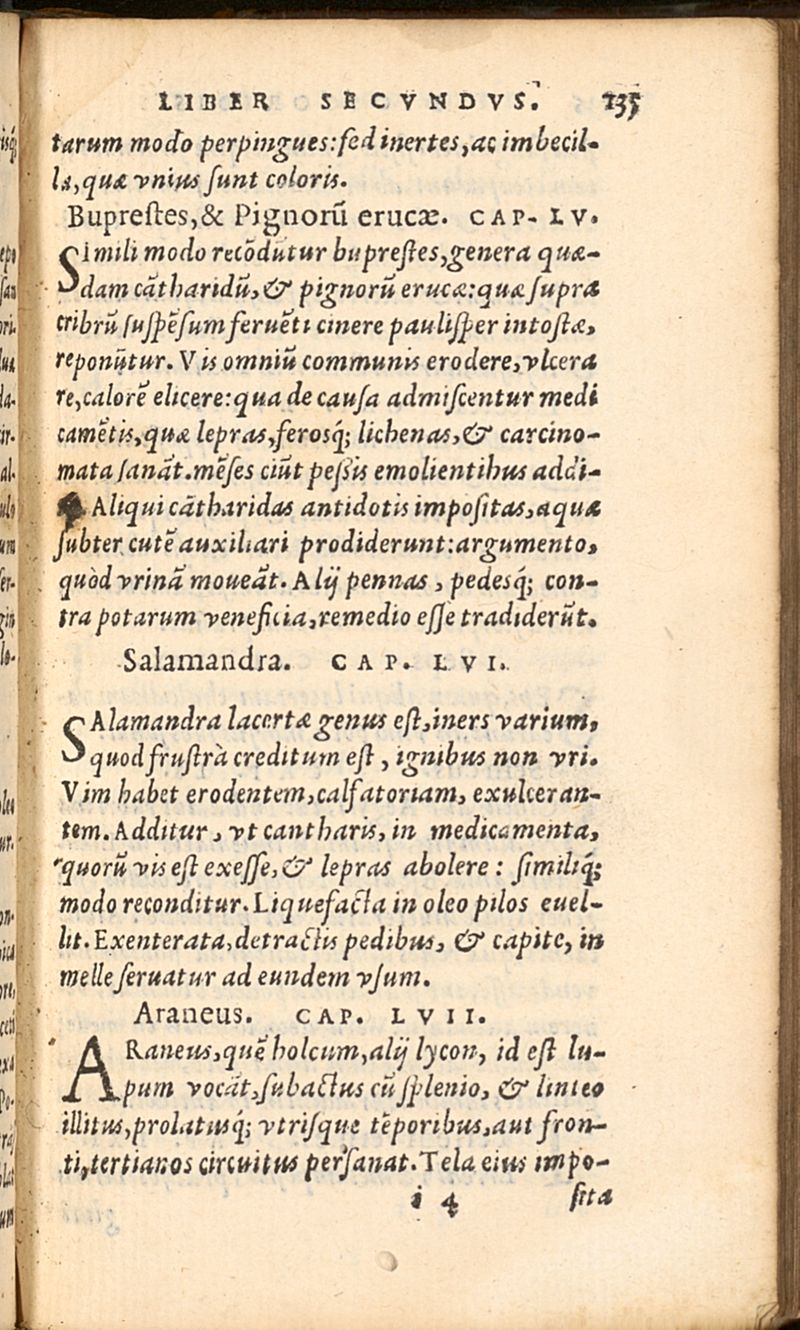 LIBER SECVNDVS. 135
tarum modo perpingues: sed inertes, ac imbecil-
la, quæ vnius sunt coloris.
Buprestes, & Pignorū erucæ. CAP. LV.
Simili modo recōdūtur buprestes, genera quæ-
dam cātharidū, & pignorū erucæ: quæ supra
cribrū suspēsum feruēti cinere paulisper intostæ,
reponūtur. Vis omniū communis erodere, vlcera
re, calorē elicere: qua de causa admiscentur medi
camētis, quæ lepras, ferosq́; lichenas, & carcino-
mata sanāt. mēses ciūt pessis emolientibus addi-
Aliqui cātharidas antidotis impositas, aquæ
subter cutē auxiliari prodiderunt: argumento,
quòd vrinā moueāt. Alij pennas, pedesq́; con-
tra potarum veneficia, remedio esse tradiderūt.
Salamandra. CAP. LVI.
SAlamandra lacertæ genus est, iners varium,
quod frustrà creditum est, ignibus non vri.
Vim habet erodentem, calfatoriam, exulceran-
tem. Additur, vt cantharis, in medicamenta,
quorū vis est exesse, & lepras abolere: similiq́;
modo reconditur. Liquefacta in oleo pilos euel-
lit. Exenterata, detractis pedibus, & capite, in
melle seruatur ad eundem vsum.
Araneus. CAP. LVII.
ARaneus, quē holcum, alij lycon, id est lu-
pum vocāt, subactus cū splenio, & linteo
illitus, prolatusq́; vtrisque tēporibus, aut fron-
ti, tertianos circuitus persanat. Tela eius impo-
i 4 sita